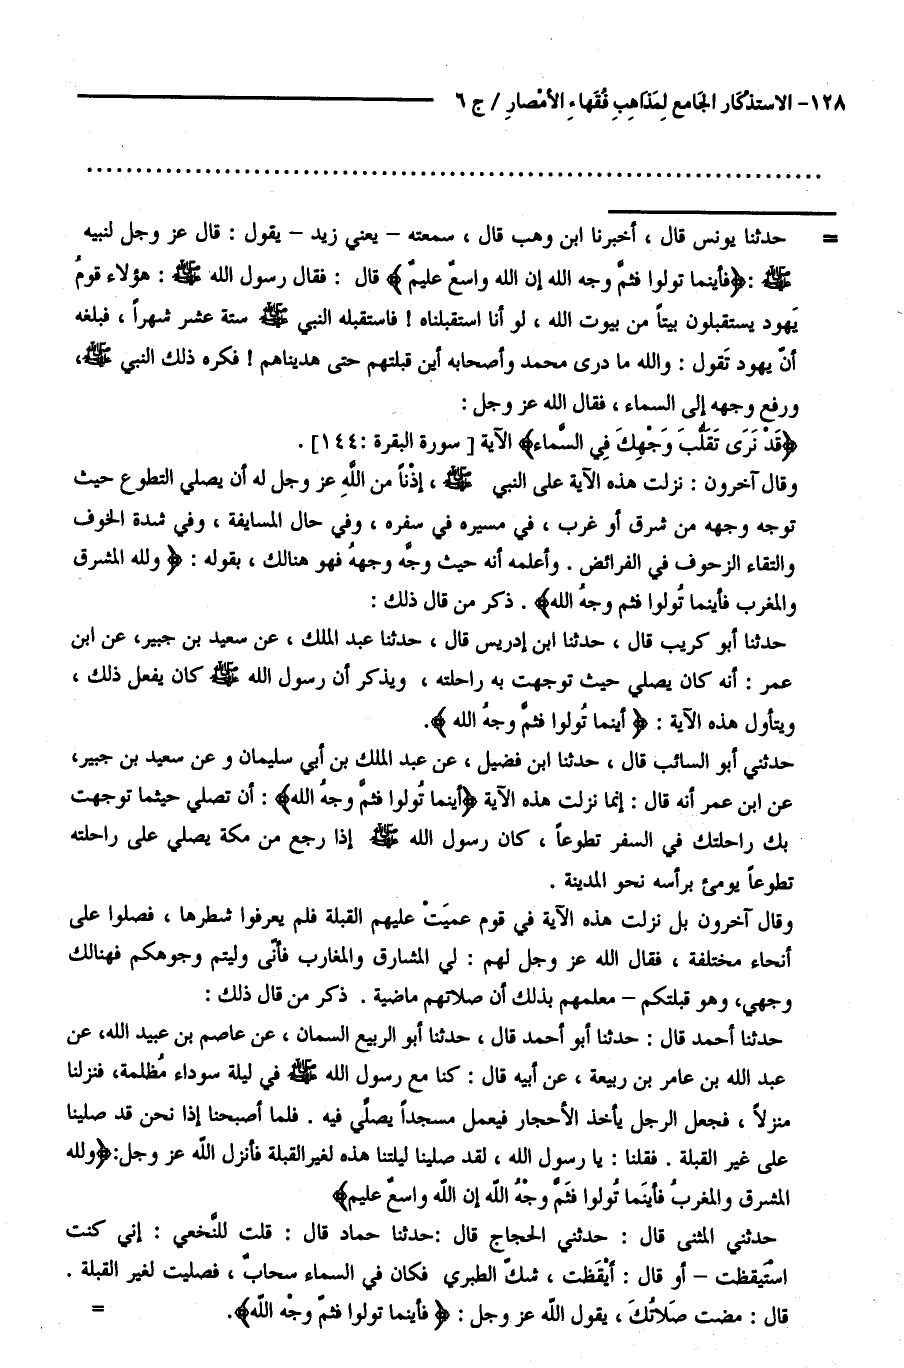 ١٢٨- الاستذكار الجامع لِمَذاهِبِ فُقَهاءِ الأمْصارِ / ج ٦
................................................................................
= حدثنا يونس قال ، أخبرنا ابن وهب قال ، سمعته – يعني زيد – يقول : قال عز وجل لنبيه
ﷺ : ﴿فأينما تولوا فثمَّ وجه الله إن الله واسعٌ عليمٌ﴾ قال : فقال رسول الله ﷺ : هؤلاء قومُ
يَهود يستقبلون بيتاً من بيوت الله ، لو أنا استقبلناه ! فاستقبله النبي ﷺ ستة عشر شهراً ، فبلغه
أنّ يهود تَقول : والله ما درى محمد وأصحابه أين قبلتهم حتى هديناهم ! فكره ذلك النبي ﷺ،
ورفع وجهه إلى السماء ، فقال الله عز وجل :
﴿قَدْ نَرَى تَقَلُّبَ وَجْهِكَ فِي السَّماء﴾ الآية [ سورة البقرة :١٤٤] .
وقال آخرون : نزلت هذه الآية على النبي ﷺ ، إذْناً من اللَّهِ عز وجل له أن يصلي التطوع حيث
توجه وجهه من شرق أو غرب ، في مسيره في سفره ، وفي حال المسايفة ، وفي شدة الخوف
والتقاء الزحوف في الفرائض . وأعلمه أنه حيث وجَّه وجههُ فهو هنالك ، بقوله : ﴿ ولله المشرق
والمغرب فأينما تُولوا فثم وجهُ الله﴾ . ذكر من قال ذلك :
حدثنا أبو كريب قال ، حدثنا ابن إدريس قال ، حدثنا عبد الملك ، عن سعيد بن جبير، عن ابن
عمر : أنه كان يصلي حيث توجهت به راحلته ، ويذكر أن رسول الله ﷺ كان يفعل ذلك ،
ويتأول هذه الآية : ﴿ أينما تُولوا فثمَّ وجهُ الله ﴾.
حدثني أبو السائب قال ، حدثنا ابن فضيل ، عن عبد الملك بن أبي سليمان و عن سعيد بن جبير،
عن ابن عمر أنه قال : إنما نزلت هذه الآية ﴿أينما تُولوا فثمَّ وجهُ الله﴾ : أن تصلي حيثما توجهت
بك راحلتك في السفر تطوعاً ، كان رسول الله ﷺ إذا رجع من مكة يصلي على راحلته
تطوعاً يومئ برأسه نحو المدينة .
وقال آخرون بل نزلت هذه الآية في قوم عميَتْ عليهم القبلة فلم يعرفوا شطرها ، فصلوا على
أنحاء مختلفة ، فقال الله عز وجل لهم : لي المشارق والمغارب فأنَّى وليتم وجوهكم فهنالك
وجهي، وهو قبلتكم – معلمهم بذلك أن صلاتهم ماضية . ذكر من قال ذلك :
حدثنا أحمد قال : حدثنا أبو أحمد قال ، حدثنا أبو الربيع السمان ، عن عاصم بن عبيد الله، عن
عبد الله بن عامر بن ربيعة ، عن أبيه قال : كنا مع رسول الله ﷺ في ليلة سوداء مُظلمة، فنزلنا
منزلاً ، فجعل الرجل يأخذ الأحجار فيعمل مسجداً يصلِّي فيه . فلما أصبحنا إذا نحن قد صلينا
على غير القبلة . فقلنا : يا رسول الله ، لقد صلينا ليلتنا هذه لغيرالقبلة فأنزل اللَّه عز وجل:﴿ولله
المشرق والمغربُ فأينَما تُولوا فثَمَّ وجْهُ اللَّه إن اللَّه واسعٌ عليم﴾
حدثني المثنى قال : حدثني الحجاج قال :حدثنا حماد قال : قلت للنَّخعي : إني كنت
استَيقظت – أو قال : أَيْقَظت ، شكّ الطبري فكان في السماء سحابٌ ، فصليت لغير القبلة .
قال : مضت صَلاتُكَ ، يقول اللَّه عز وجل : ﴿ فأينما تولوا فثمَّ وجْه اللَّه﴾. =